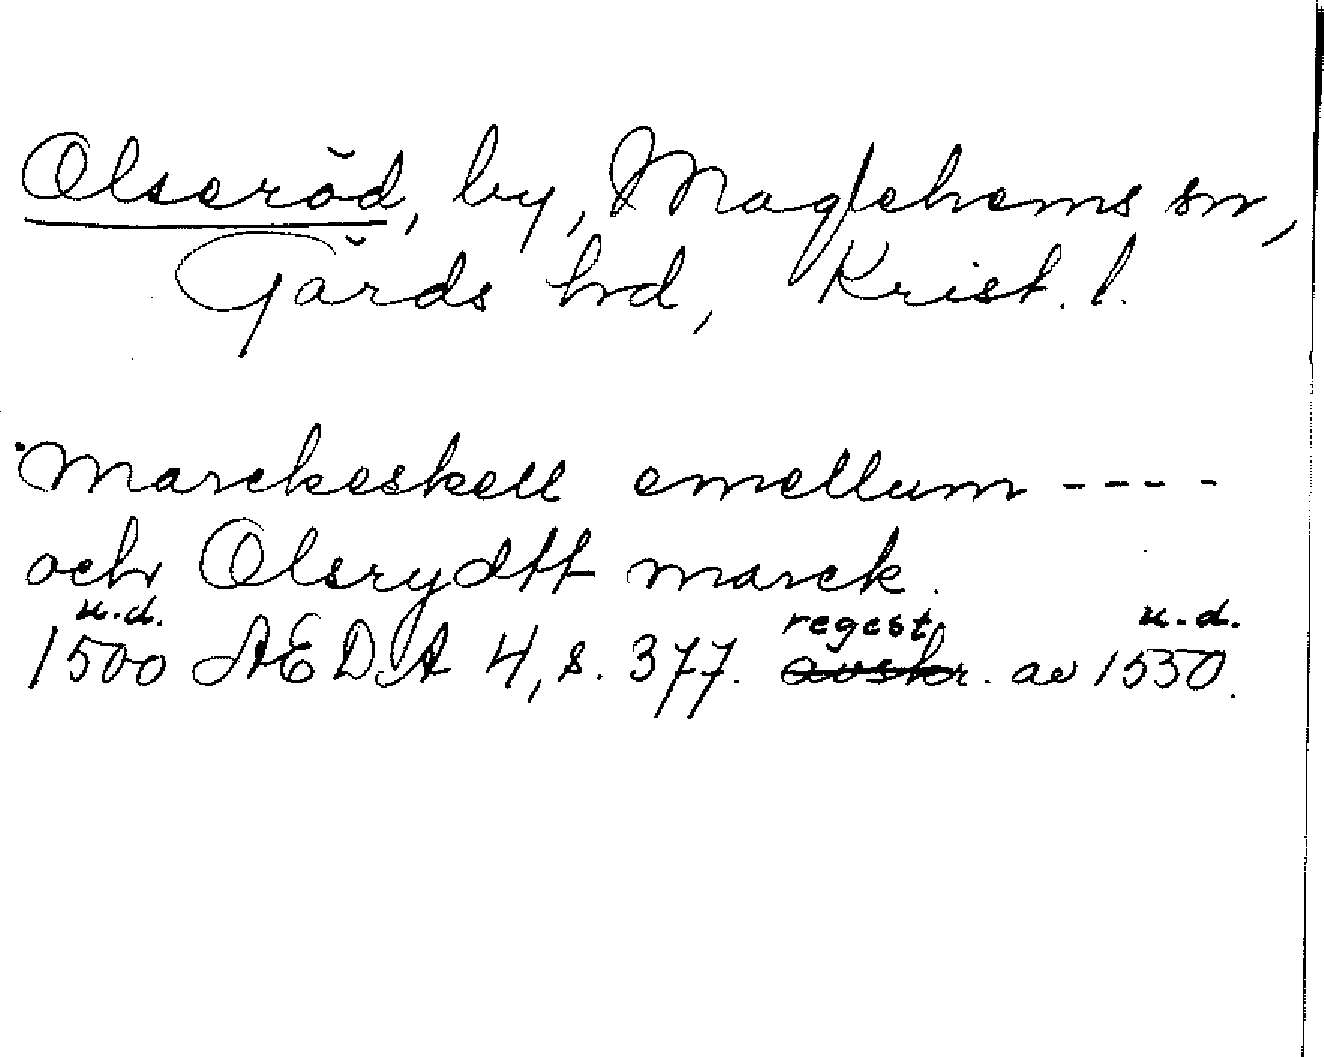 Olseröd, by, Maglehems sn,
Gärds hrd, Krist. l.
Marckeskell emellum ----
och Olsrydtt marck.
u.d. regest u.d.
1500 ÆDA 4, s. 377. avskr. av 1550.